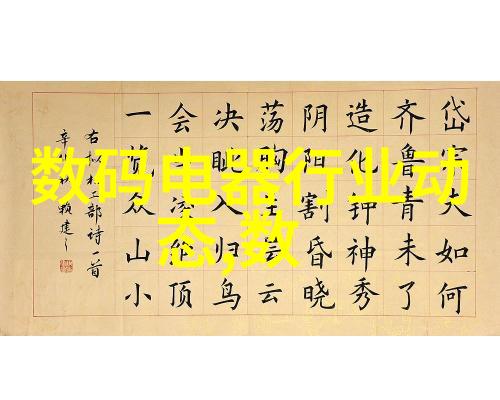 数码电器行业动
态,数
岱宗夫如何
齐鲁青未了
造化钟神秀
阴阳割昏晓
荡胸生云
决眦入归鸟
会当凌绝顶
一览众山小
右杜工部诗一首
辛 赖建